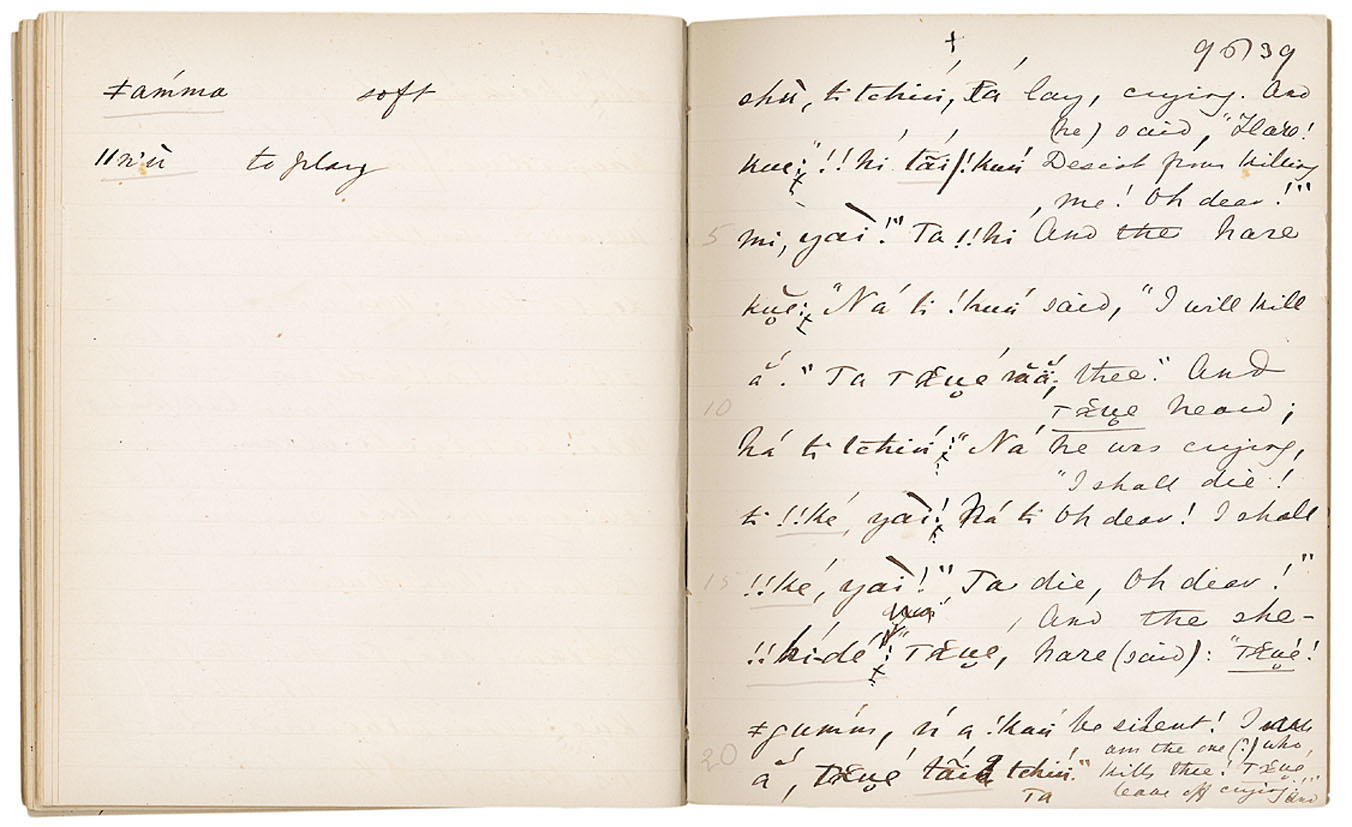 ǂamma soft
ǁn'u to play
9639
+
shu, ti tchin, ta lay, crying. And
(he) said, "Hare!
kue: "!! hi tai/!kun Desist from killing
me! Oh dear!"
5 mi, yai!" Ta !!hi And the hare
kue: "Na ti !kun said, "I will kill
a." Ta thee." And
heard;
10
ha ti tchin: "Na he was crying,
"I shall die!
ti !!ke, yai! Na ti Oh dear! I shall
15 !!ke, yai!" Ta die, Oh dear!"
And the she-
!!hi-dé: hare (said):
ǂgumm, n a !kun be silent! I
am the one (?) who
20 a, tai tchin." kills thee!
Ta leave off crying!" And